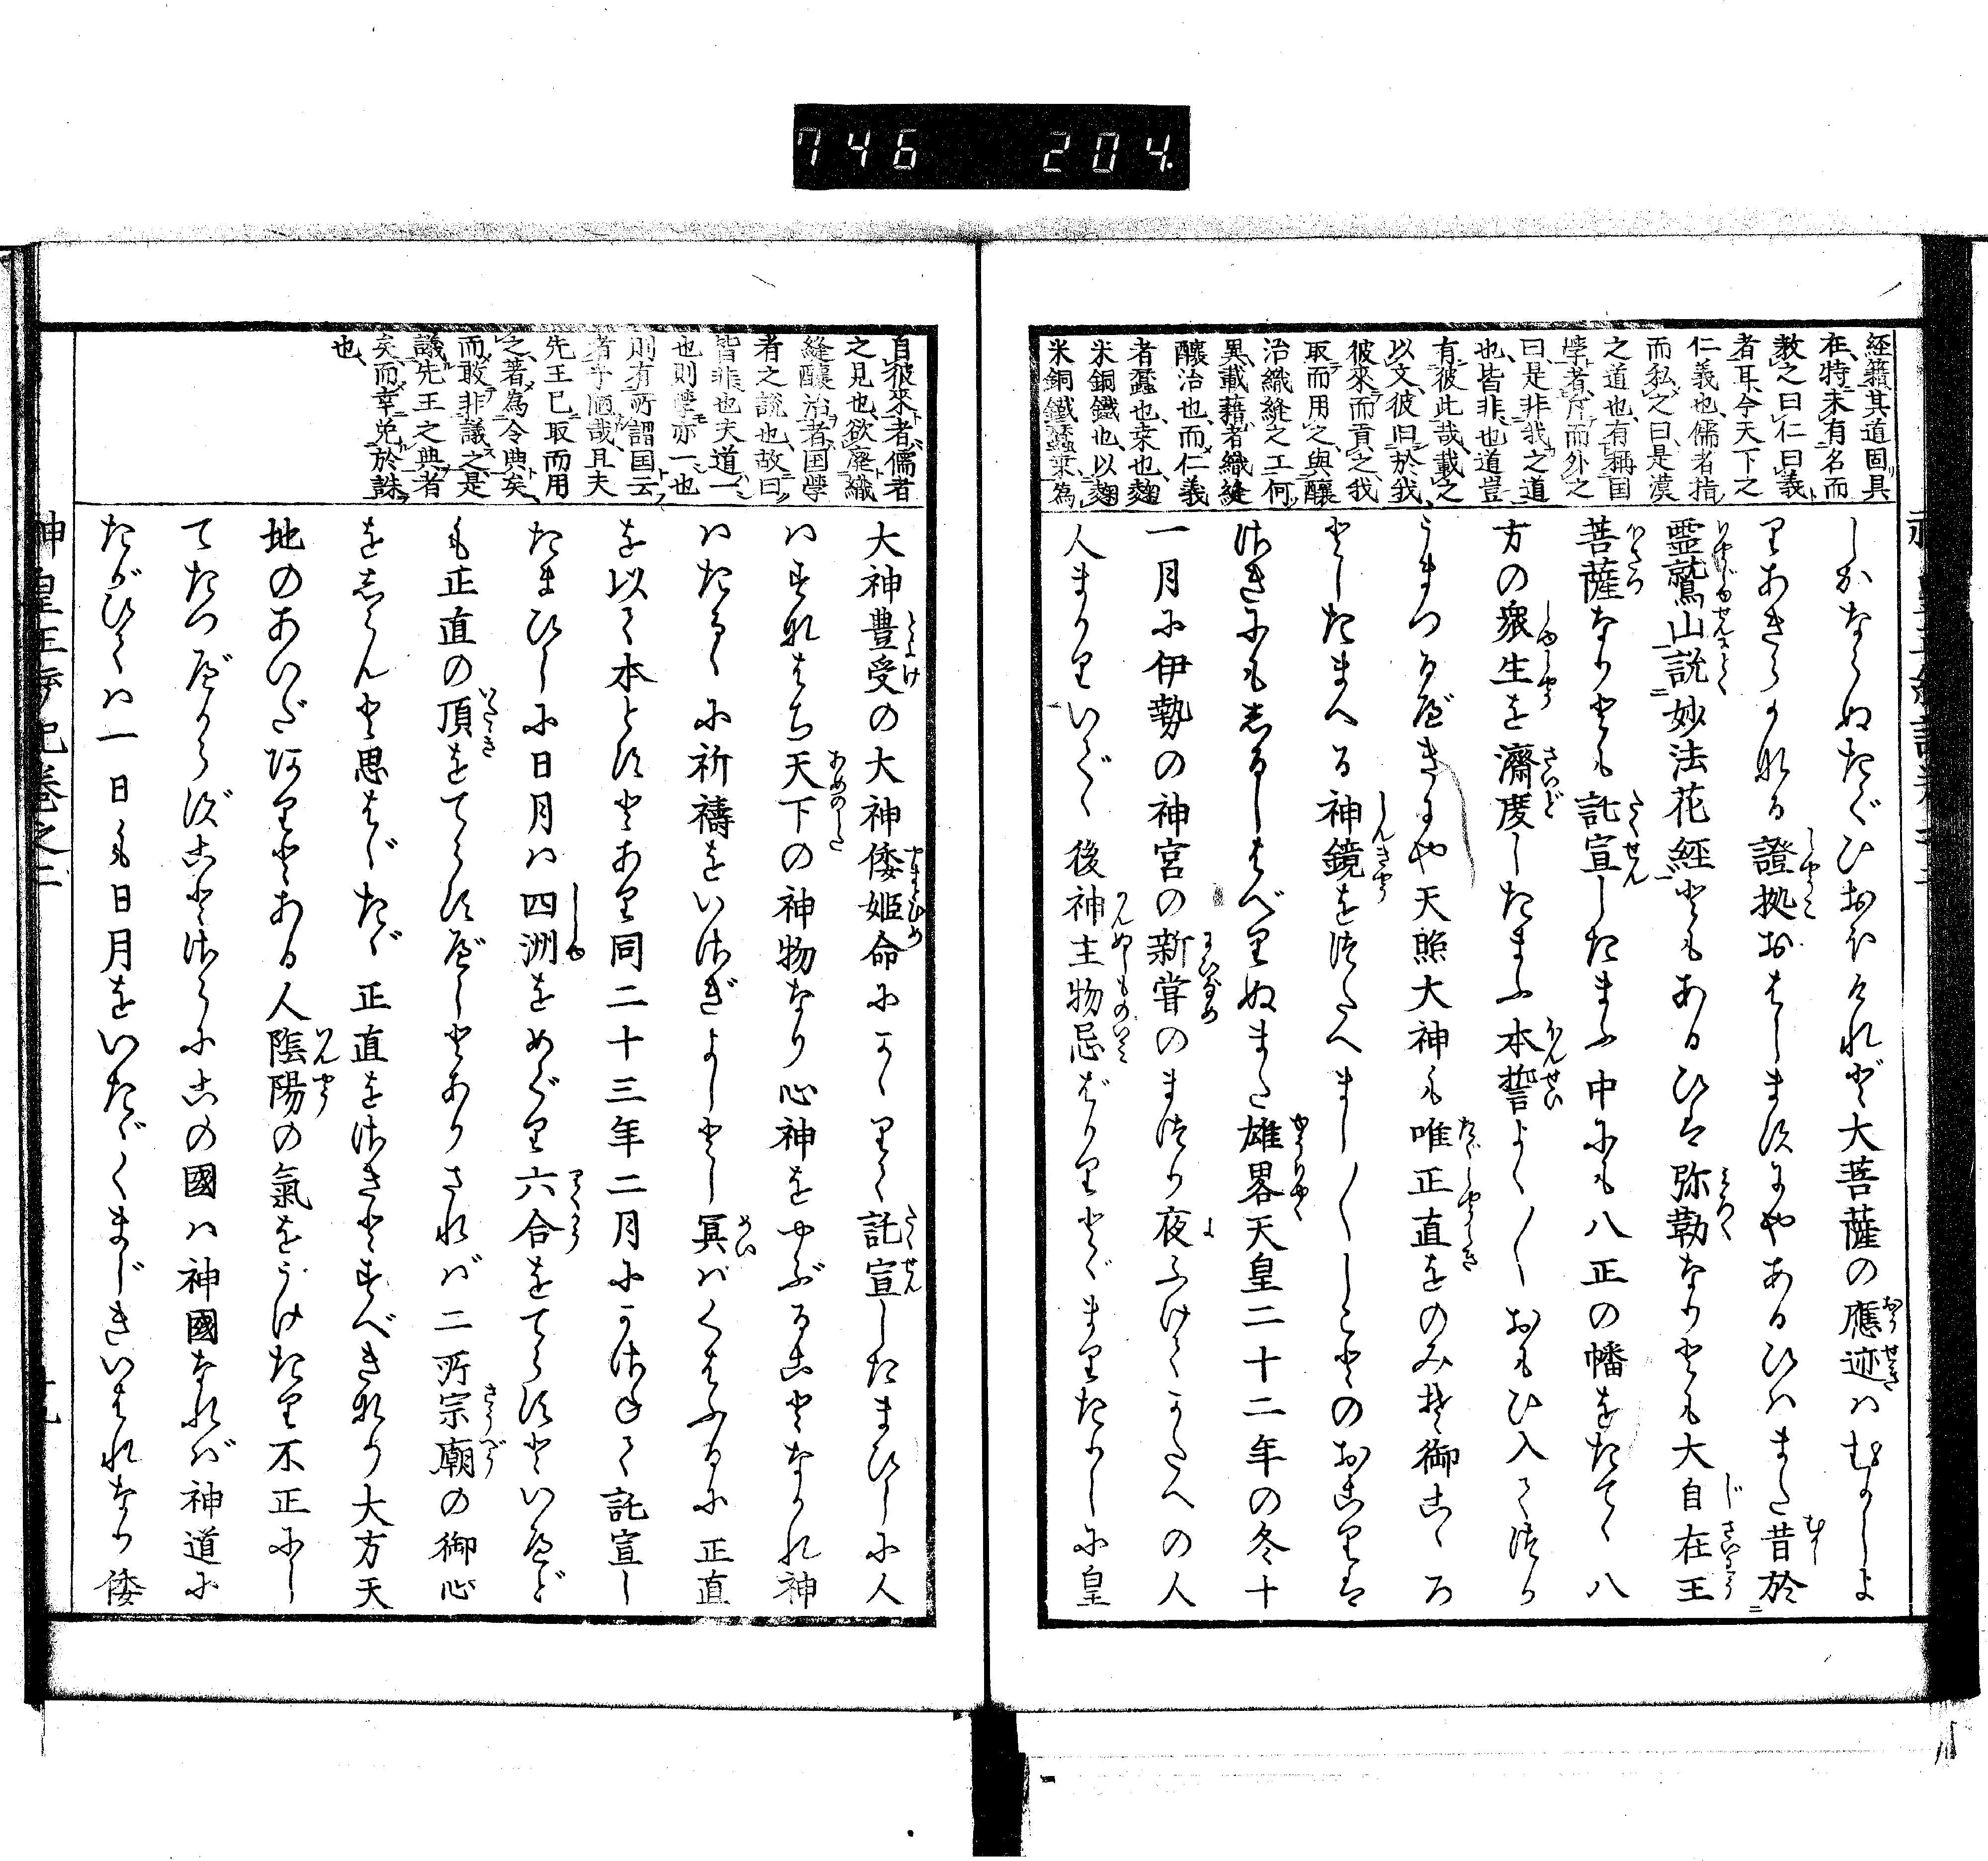 746 204.
経籍其道固具
在特未有名而
教之曰仁曰義
者耳今天下之
仁義也儒者指
而私之曰是漢
之道也有稱国
學者斥而外之
曰是非我之道
也皆非也道豈
有彼此哉載之
以文彼旧於我
彼來而貢之我
取而用之與釀
治織縫之工何
異載藉者織縫
釀治也而仁義
者蠶也桒也麹
米銅鐵也以麹
米銅鐵蠶桒為
しかならぬたぐひおほけれど大菩薩の應迹はむかしよ
りあきらかなる證拠おはしますにやあるひはまた昔於
霊鷲山説妙法花經ともあるひは弥勒なりとも大自在王
菩薩なりとも託宣したまふ中にも八正の幡をたてゝ八
方の衆生を濟度したまふ本誓よく〳〵おもひ入てつか
うまつるべきにや天照大神も唯正直をのみぞ御こゝろ
としたまへる神鏡をつたへまし〳〵しことのおこりは
さきにもしるしはべりぬまた雄畧天皇二十二年の冬十
一月に伊勢の神宮の新嘗のまつり夜ふけてかたへの人
人まかりいでゝ後神主物忌ばかりとゞまりたりしに皇
自彼來者儒者
之見也欲廢織
縫釀治者国學
者之説也故曰
皆非也夫道一
也則學亦一也
則有所謂国云
者乎陋哉且夫
先王已取而用
之著為令典矣
而敢非議之是
議先王之典者
矣而幸免於誅
也
大神豊受の大神倭姫命にかゝりて託宣したまひしに人
はすなはち天下の神物なり心神をやぶることなかれ神
はたるゝに祈禱をいさぎよしとし冥はくはふるに正直
を以て本とすとあり同二十三年二月にかさねて託宣し
たまひしに日月は四洲をめぐり六合をてらすといへど
も正直の頂をてらすべしとありされば二所宗廟の御心
をしらんと思はゞたゞ正直をさきとすべきなり大方天
地のあいだにありとある人陰陽の氣をうけたり不正にし
てたつべからずことさらにこの國は神國なれば神道に
たがひては一日も日月をいたゞくまじきいはれなり倭
神皇正統記巻之二